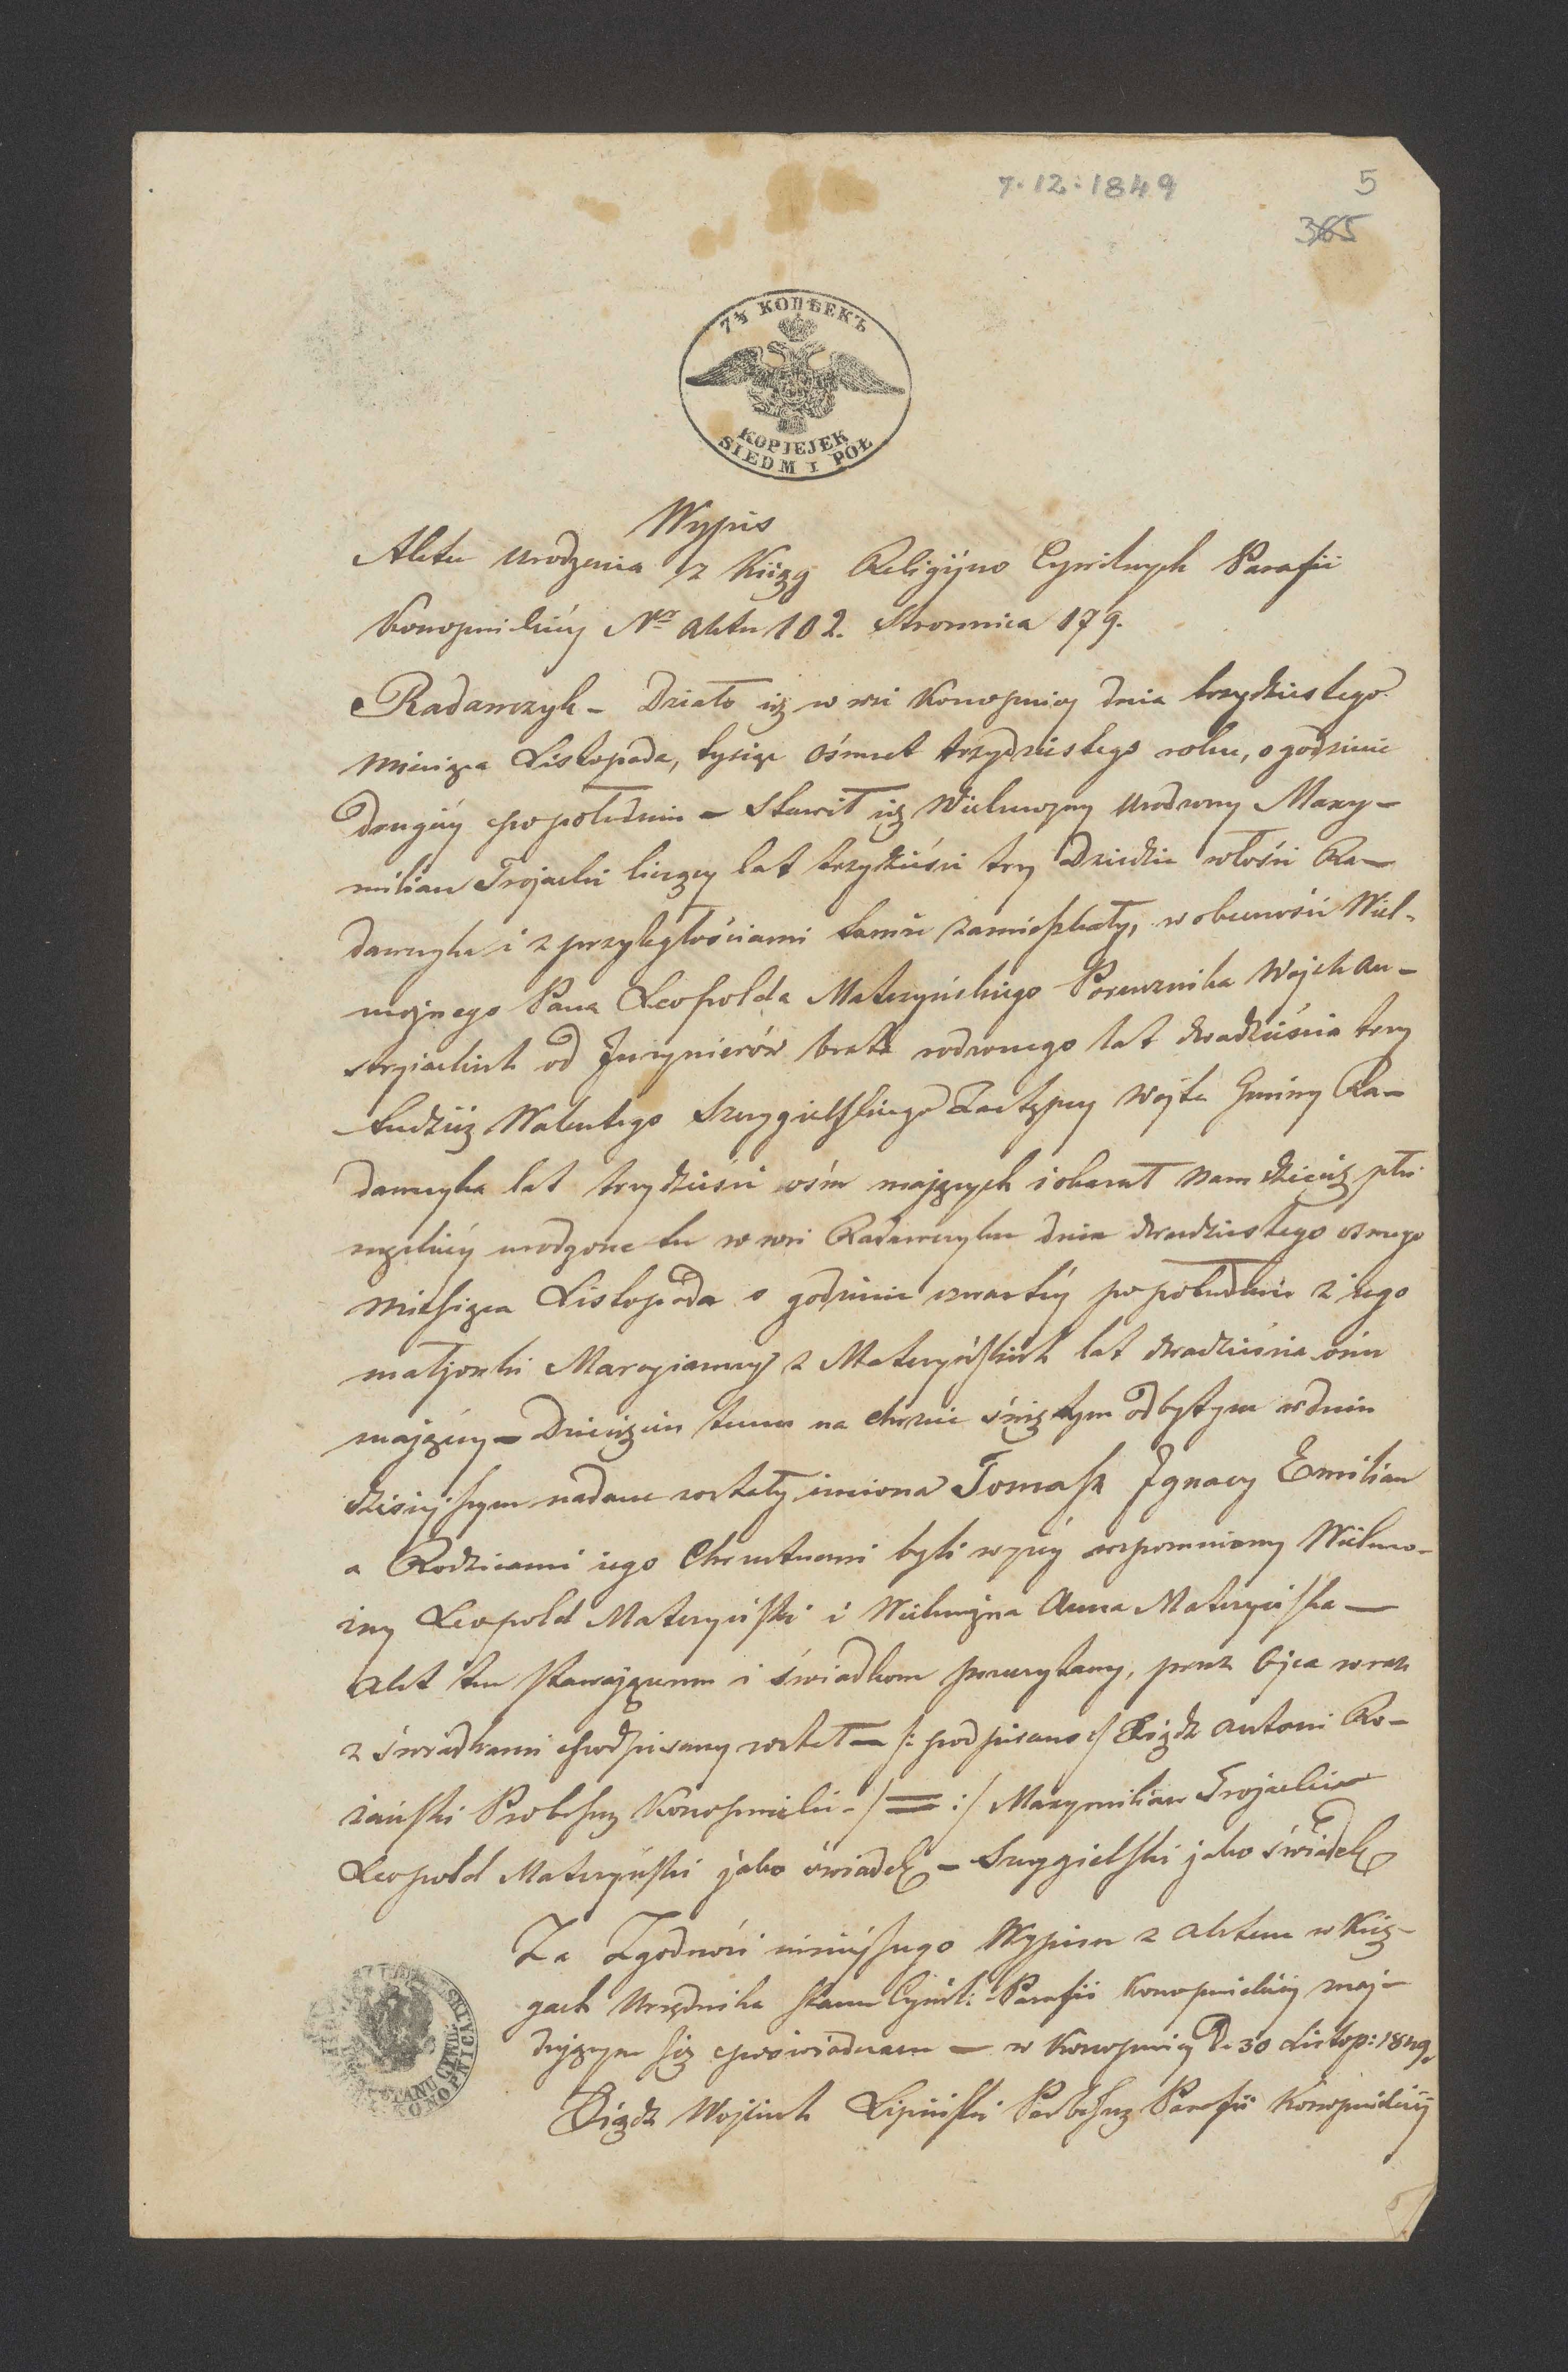 7.12.1849
5
365
7½ КОПѢЕКЪ
KOPIEJEK
SIEDM I PÓŁ
Wypis
Aktu urodzenia z Xiąg Religijno Cywilnych Parafii
Konopnickiéy Nr aktu 102. Stronnica 179.
Radawczyk – Działo się w wsi Konopnicy dnia trzydziestego
Miesiąca Listopada, tysiąc ośmset trzydziestego roku, o godzinie
drugiéy popołudniu – Stawił się Wielmożny Urodzony Maxy-
milian Trojacki liczący lat trzydzieści trzy Dziedzic włości Ra-
dawczyka i z przyległościami tamże zamieszkały, w obecności Wiel-
możnego Pana Leopolda Matczyńskiego Porucznika Wojsk Au-
stryiackich od Inzynierów brata rodzonego lat dwadzieścia trzy
tudzież Walentego Szczygielskiego Zastępcy Wójta Gminy Ra-
dawczyka lat trzydzieści ośm mających i okazał nam dziecię płci
męzkiéy urodzone tu w wsi Radawczyku dnia dwudziestego osmego
Miesiąca Listopada o godzinie czwartéy popołudniu z iego
małżonki Maryianny z Matczyńskich lat dwadzieścia ośm
maiącéy – Dziecięciu temu na chrzcie świętym odbytym w dniu
dzisiejszym nadane zostały imiona Tomasz Ignacy Emilian
a Rodzicami iego Chrzestnemi byli wyżéy wspomniony Wielmo-
żny Leopold Matczyński i Wielmożna Anna Matczyńska –
Akt ten stawającemu i świadkom przeczytany, przez Ojca wraz
z świadkami podpisany został – /: podpisano :/ Xiądz Antoni Ro-
żański Proboszcz Konopnicki – / = :/ Maxymilian Trojacki
Leopold Matczyński jako świadek – Szczygielski jako świadek
Za Zgodność niniéjszego Wypisu z aktem w Xię-
gach Urzędnika Stanu Cywil: Parafii Konopnickiéy znaj-
dującym się poświadczam – w Konopnicy d. 30 Listop: 1849.
Xiądz Wojciech Lipiński Proboszcz Parafii Konopnickiéy
STANU CYWIL.
KONOPNICA